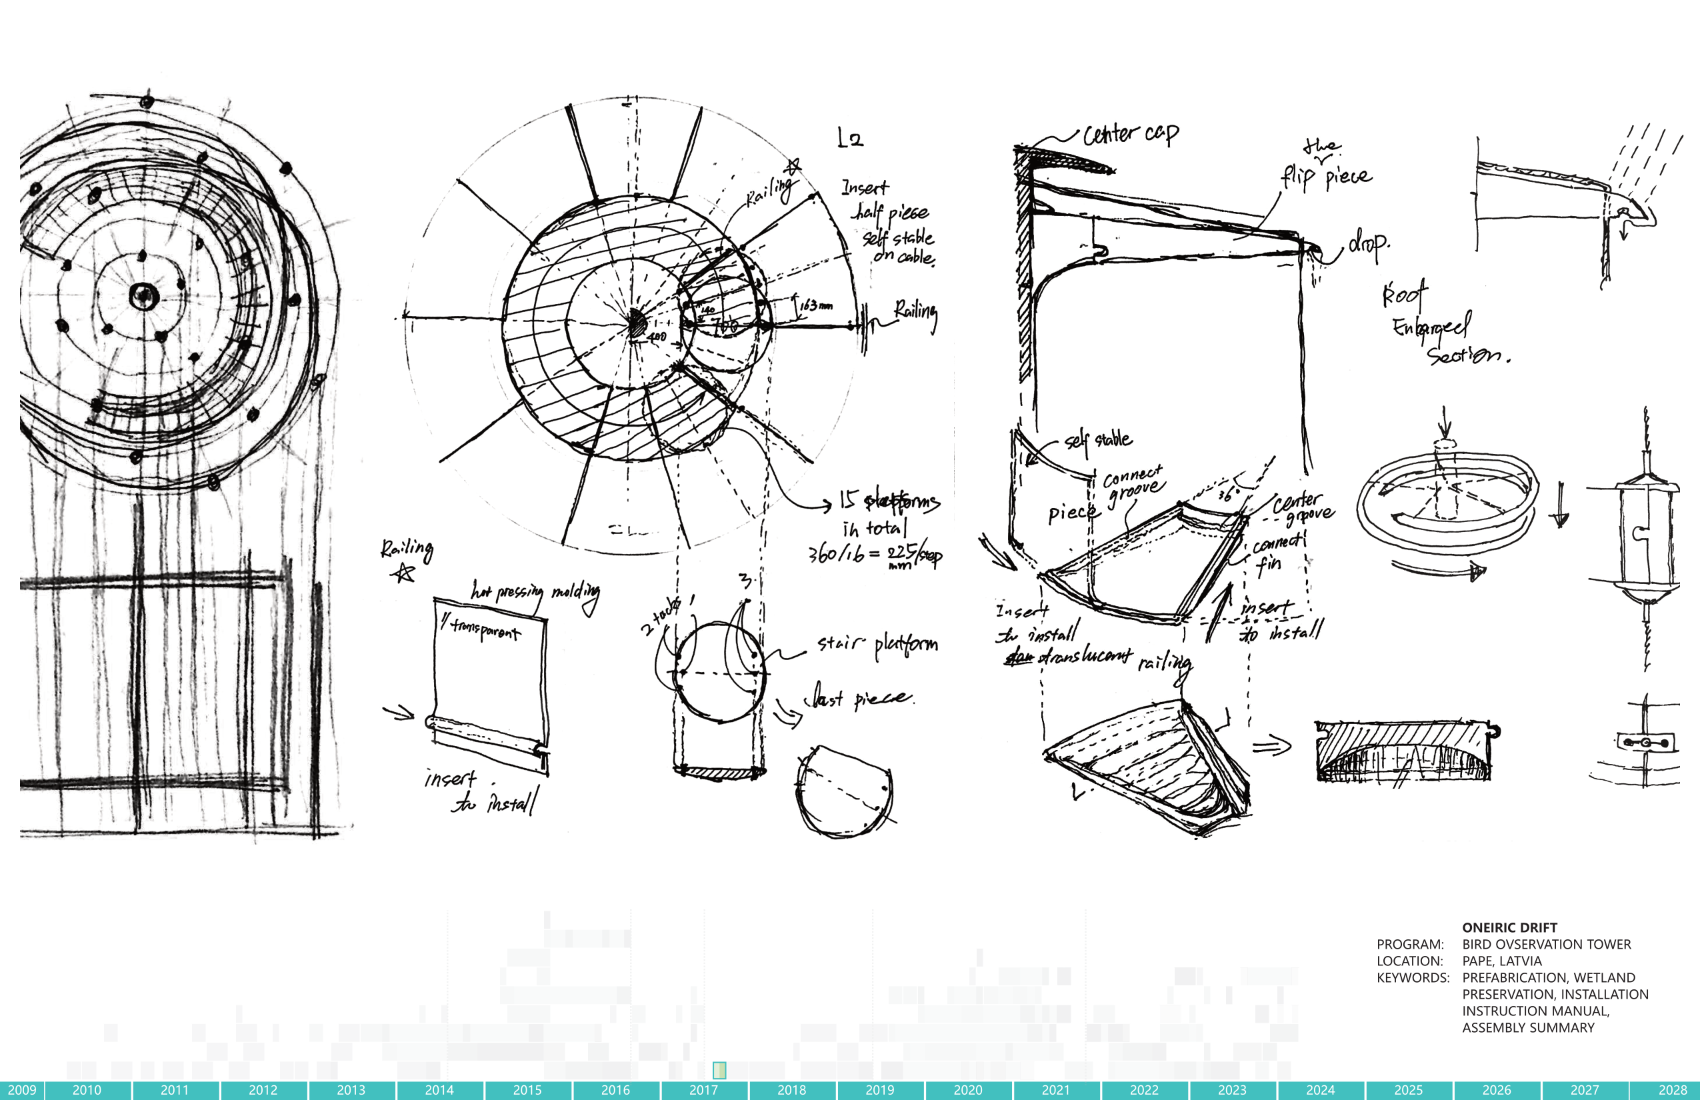 L2
Railing
Insert
half piese
self stable
on cable.
Railing
163mm
140
700
400
15 platforms
in total
360/16 = 225/step
mm
Railing
hot pressing molding
transparent
insert
to install
2 tacks
3
stair platform
last piece.
center cap
the
flip piece
drop.
Roof
Enlarged
Section.
self stable
connect
groove
piece
36°
center
groove
connect
fin
Insert
to install
translucent railing
insert
to install
ONEIRIC DRIFT
PROGRAM: BIRD OVSERVATION TOWER
LOCATION: PAPE, LATVIA
KEYWORDS: PREFABRICATION, WETLAND
PRESERVATION, INSTALLATION
INSTRUCTION MANUAL,
ASSEMBLY SUMMARY
2009 2010 2011 2012 2013 2014 2015 2016 2017 2018 2019 2020 2021 2022 2023 2024 2025 2026 2027 2028